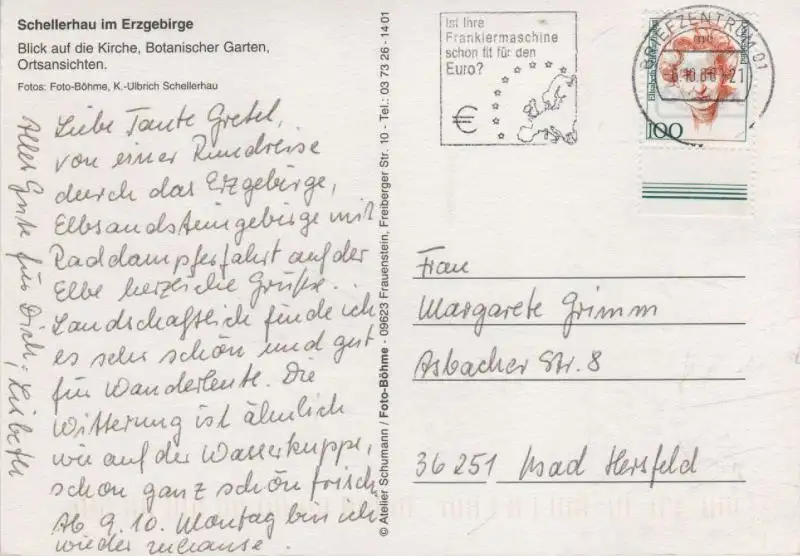 Schellerhau im Erzgebirge
Blick auf die Kirche, Botanischer Garten,
Ortsansichten.
Fotos: Foto-Böhme, K.-Ulbrich Schellerhau
Liebe Tante Gretel,
von einer Rundreise
durch das Erzgebirge,
Elbsandsteingebirge mit
Raddampferfahrt auf der
Elbe herzliche Grüße.
Landschaftlich finde ich
es sehr schön und gut
für Wanderleute. Die
Witterung ist ähnlich
wie auf der Wasserkuppe,
schon ganz schön frisch.
Ab 9.10. Montag bin ich
wieder zuhause.
Alles Gute für Dich, Lisbeth
© Atelier Schumann / Foto-Böhme - 09623 Frauenstein, Freiberger Str. 10 - Tel.: 03 73 26 - 14 01
Ist Ihre
Frankiermaschine
schon fit für den
Euro?
€
BRIEFZENTRUM 01
-21
100
Frau
Margarete Grimm
Asbacher Str. 8
36251 Bad Hersfeld